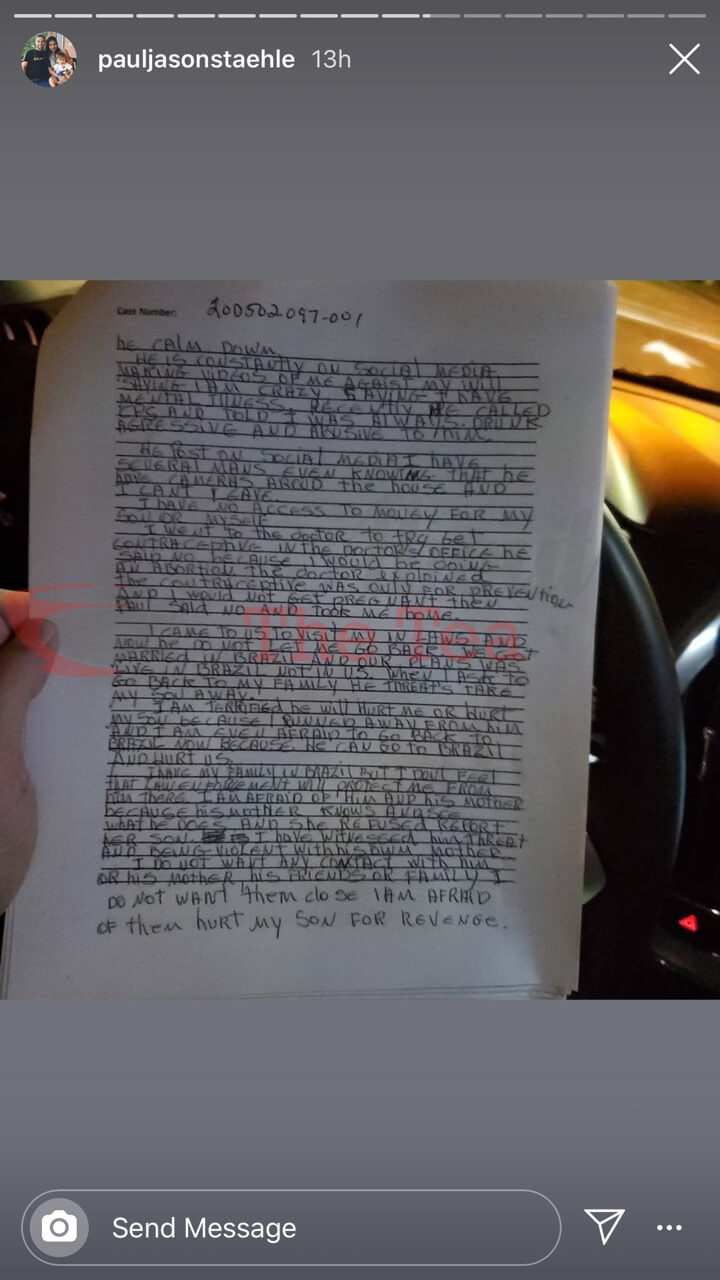 pauljasonstaehle 13h
Case Number: 200502097-001
he CALM DOWN
HE IS CONSTANTLY ON SOCIAL MEDIA
MAKING VIDEOS OF ME AGAIST MY WILL
SAYING I AM CRAZY SAYING I HAVE
MENTAL ILLNESS, RECENTLY HE CALLED
CPS AND TOLD I WAS ALWAYS DRUNK
AGRESSIVE AND ABUSIVE TO him
HE POST ON SOCIAL MEDIA I HAVE
SEVERAL MANS EVEN KNOWING THAT he
HAVE CAMERAS AROUD the house AND
I CANT LEAVE
I HAVE NO ACCESS TO MONEY FOR MY
SON OR MYSELF
I WENT TO the DOCTOR TO try get
CONTRACEPTIVE IN the DOCTOR'S OFFICE he
SAID NO BECAUSE I WOULD BE DOING
AN ABORTION the doctor explained
the CONTRACEPTIVE WAS ONLY FOR PREVENTION
AND I would NOT GET PREGNANT then
Paul SAID NO AND TOOK ME home
I CAME TO US TO VISIT MY IN LAWS AND
NOW he DO NOT LET ME GO BACK. WE GOT
MARRIED IN BRAZIL AND OUR PLANS WAS
LIVE IN BRAZIL NOT IN US. when I ASK TO
GO BACK TO MY FAMILY HE THREAT'S TAKE
MY SON AWAY.
I AM TERRIFIED he will HURT ME OR HURT
MY SON BECAUSE I RUNNED AWAY FROM him
AND I AM EVEN AFRAID TO GO BACK TO
BRAZIL NOW BECAUSE HE CAN GO TO BRAZIL
AND HURT US.
I HAVE MY FAMILY IN BRAZIL BUT I DON'T FEEL
THAT LAW ENFORCEMENT WILL PROTECT ME FROM
him THERE. I AM AFRAID OF HIM AND his MOTHER
because his mother KNOWS
WHAT he DOES AND She REFUSED REPORT
HER SON. I have WITNESSED him THREAT
AND BEING VIOLENT WITH his OWN MOTHER.
I DO NOT WANT ANY CONTACT with him
OR his MOTHER his FRIENDS OR FAMILY I
DO NOT WANT them close I AM AFRAID
OF them hurt my SON FOR REVENGE.
The Tea
Send Message